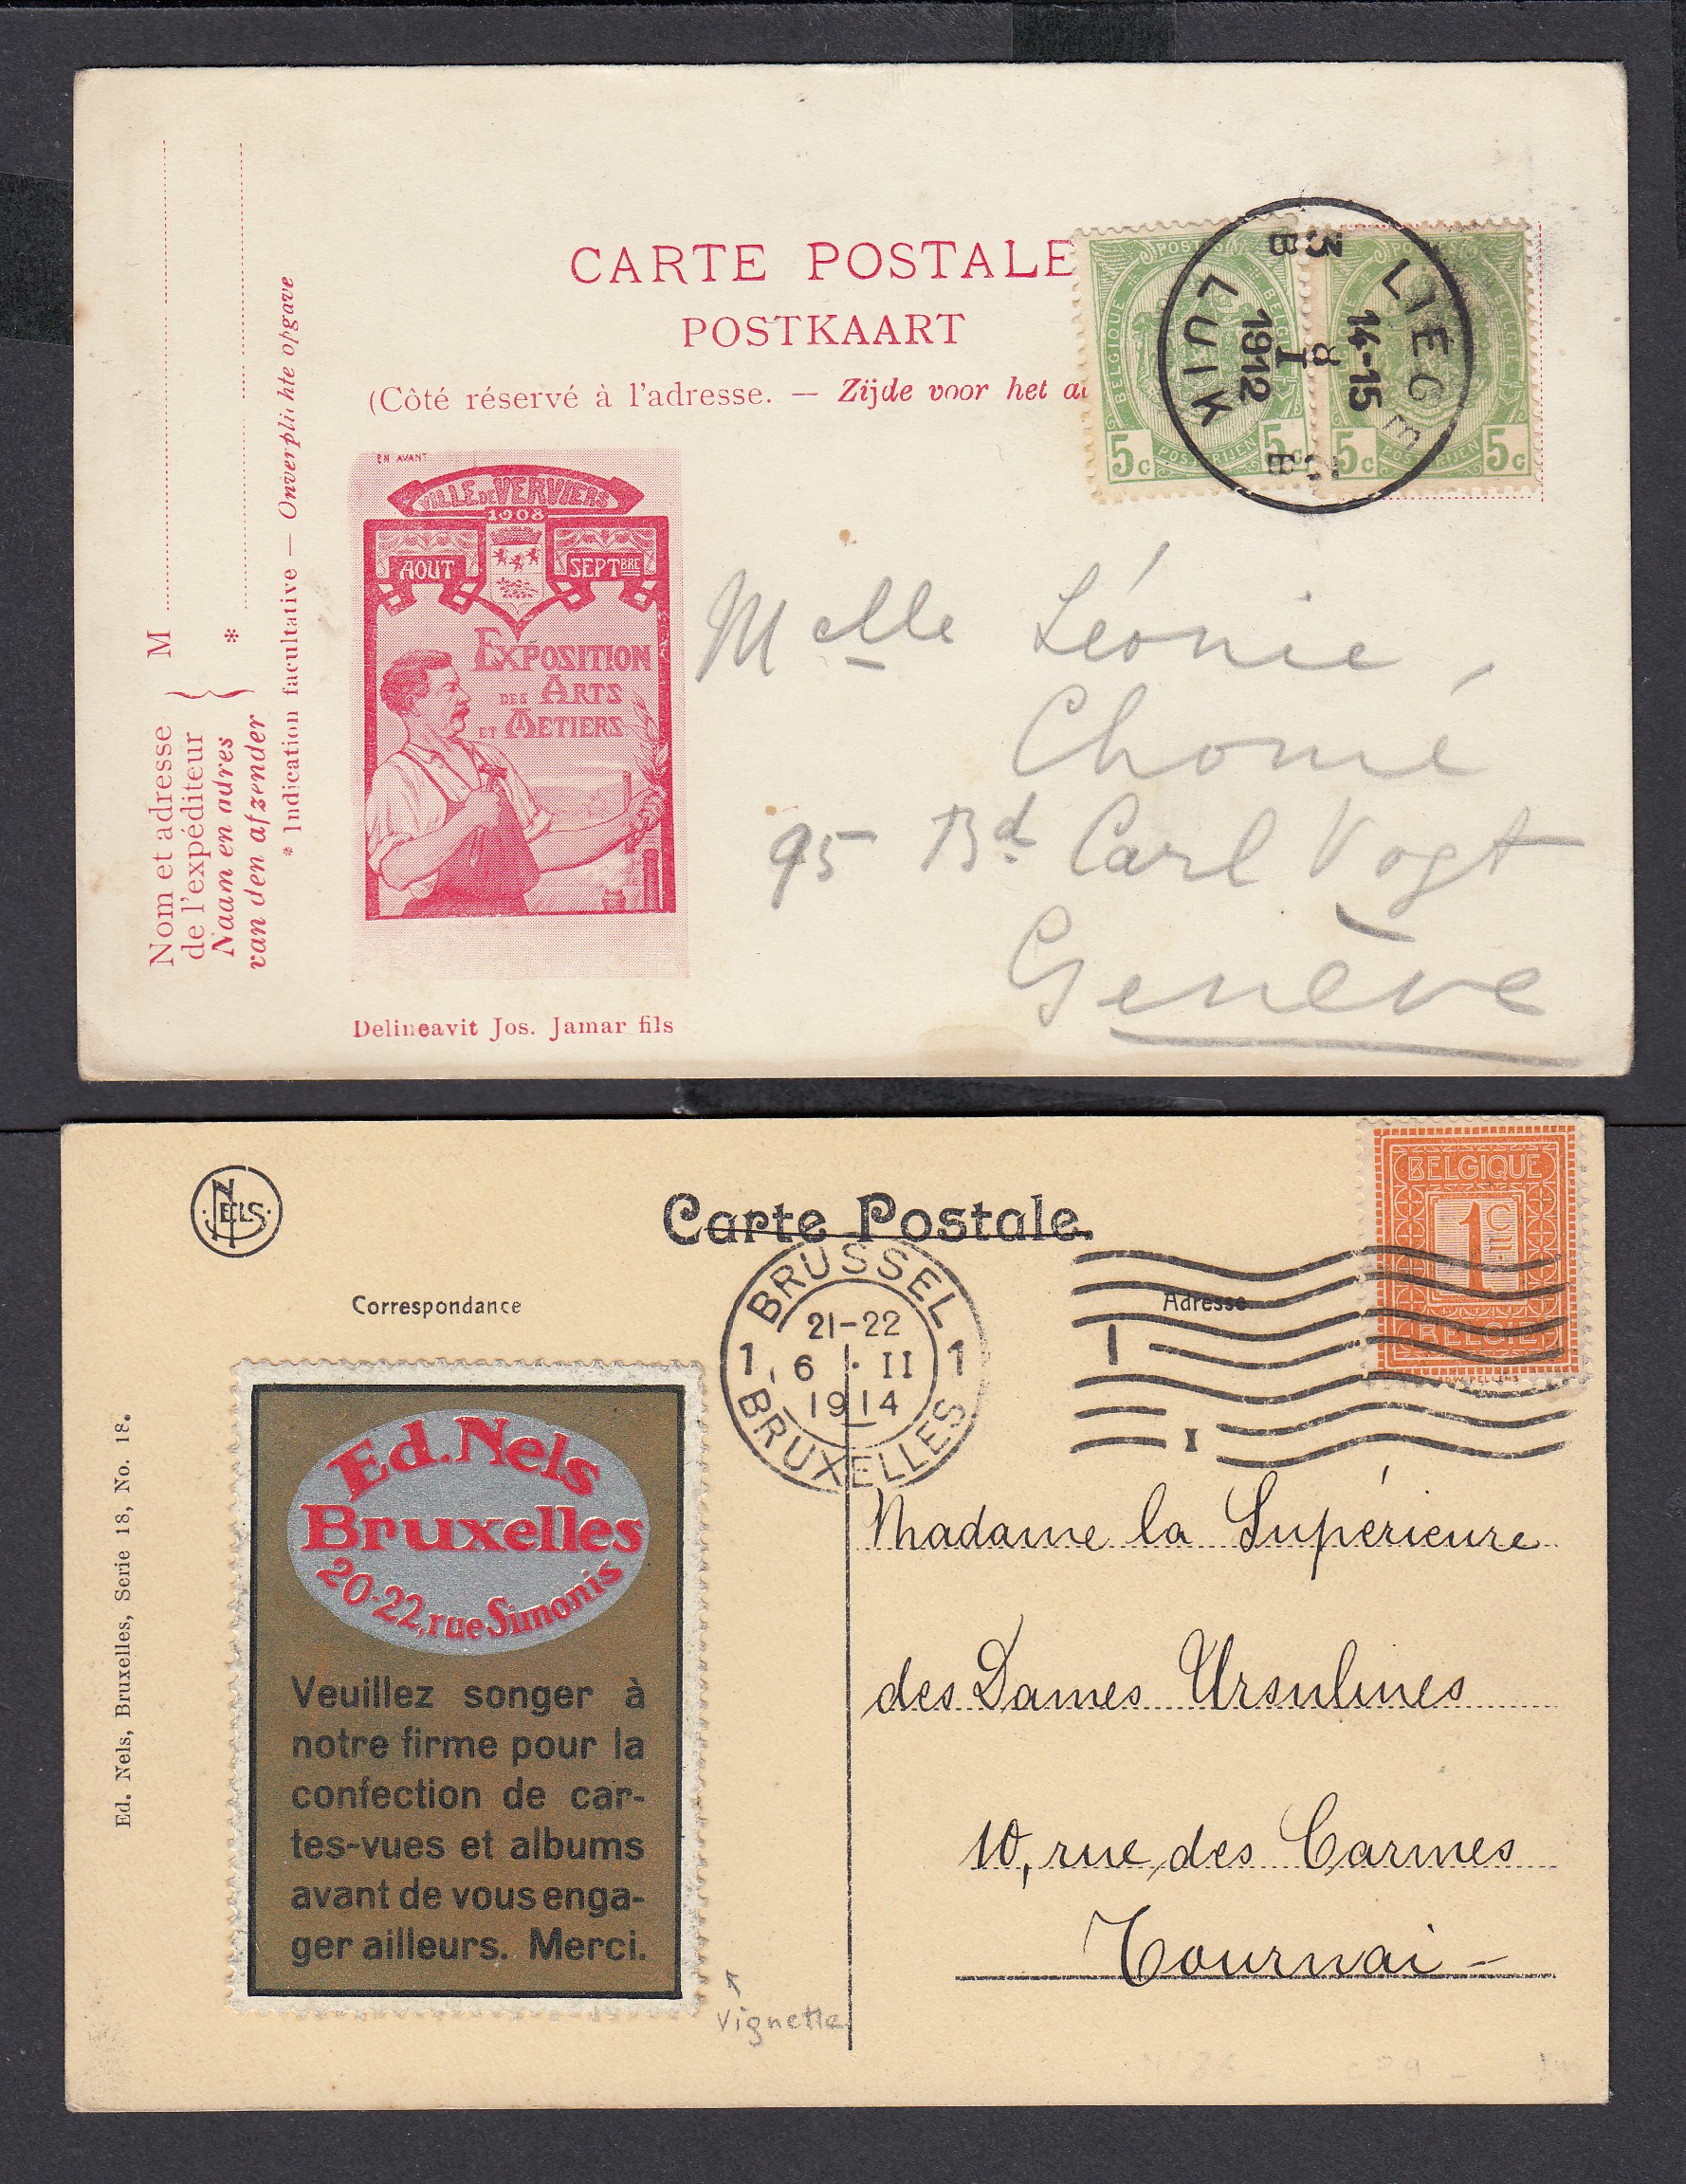 CARTE POSTALE
POSTKAART
(Côté réservé à l'adresse. — Zijde voor het
Nom et adresse
de l'expéditeur
Naam en adres
van den afzender
M
*
* Indication facultative — Onverplichte opgave
EN AVANT
VILLE DE VERVIERS
1908
AOUT SEPTBRE
EXPOSITION
DES ARTS
ET METIERS
Delineavit Jos. Jamar fils
POSTES
BELGIQUE BELGIË
POSTERIJEN
5c 5c
POSTES
BELGIË
POSTERIJEN
5c 5c
LIEGE
3B
14-15
8
I
1912
2B
LUIK
Melle Léonie
Chomé
95 Bd Carl Vogt
Genève
NELS
Carte Postale
Correspondance
Adresse
BELGIQUE
1C
BELGIË
BRUSSEL
21-22
1 6 · II 1
1914
BRUXELLES
1
I
Ed. Nels, Bruxelles, Serie 18, No. 18.
Ed. Nels
Bruxelles
20-22, rue Simonis
Veuillez songer à
notre firme pour la
confection de car-
tes-vues et albums
avant de vous enga-
ger ailleurs. Merci.
Vignette
Madame la Supérieure
des Dames Ursulines
10, rue des Carmes
Tournai -